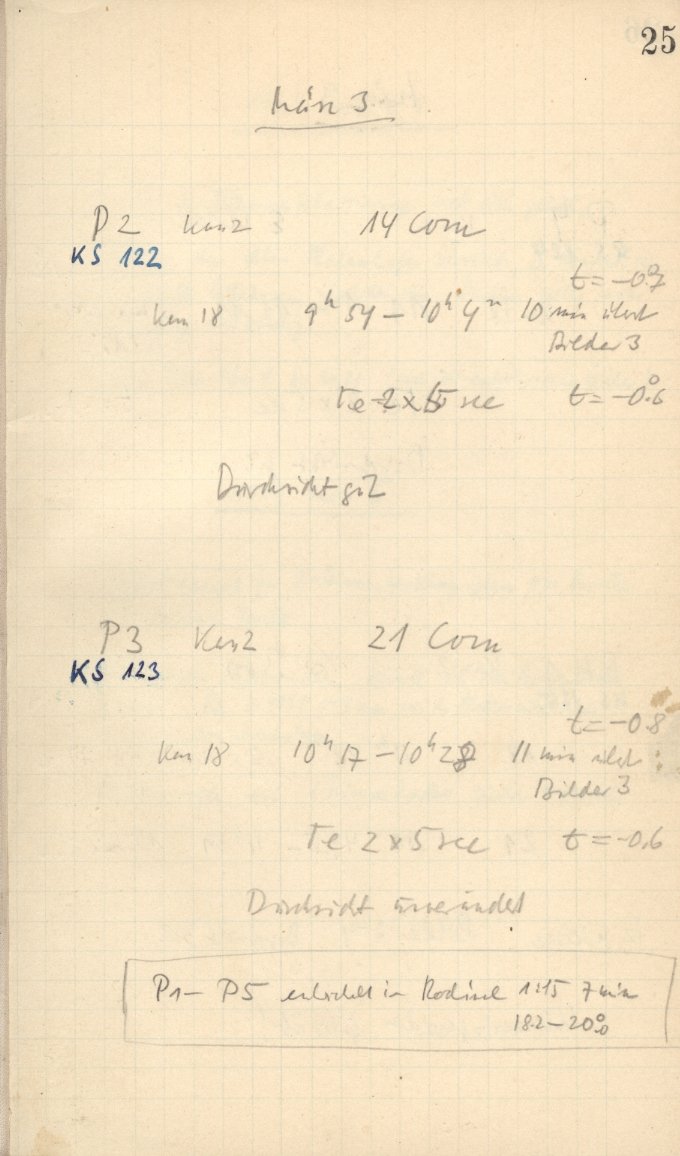 25
März 3
P2 Kam 2 14 Com
KS 122
t = -0.7
Kam 18 9h 54 – 10h 4m 10 min
Bilder 3
Te 2 x 5 sec t = -0°.6
Durchsicht gut
P3 Kam 2 21 Com
KS 123
t = -0.8
Kam 18 10h 17 – 10h 28 11 min
Bilder 3
Te 2 x 5 sec t = -0.6
Durchsicht unverändert
P1 – P5 entwickelt in Rodinal 1:15 7 min
18.2 – 20°.0